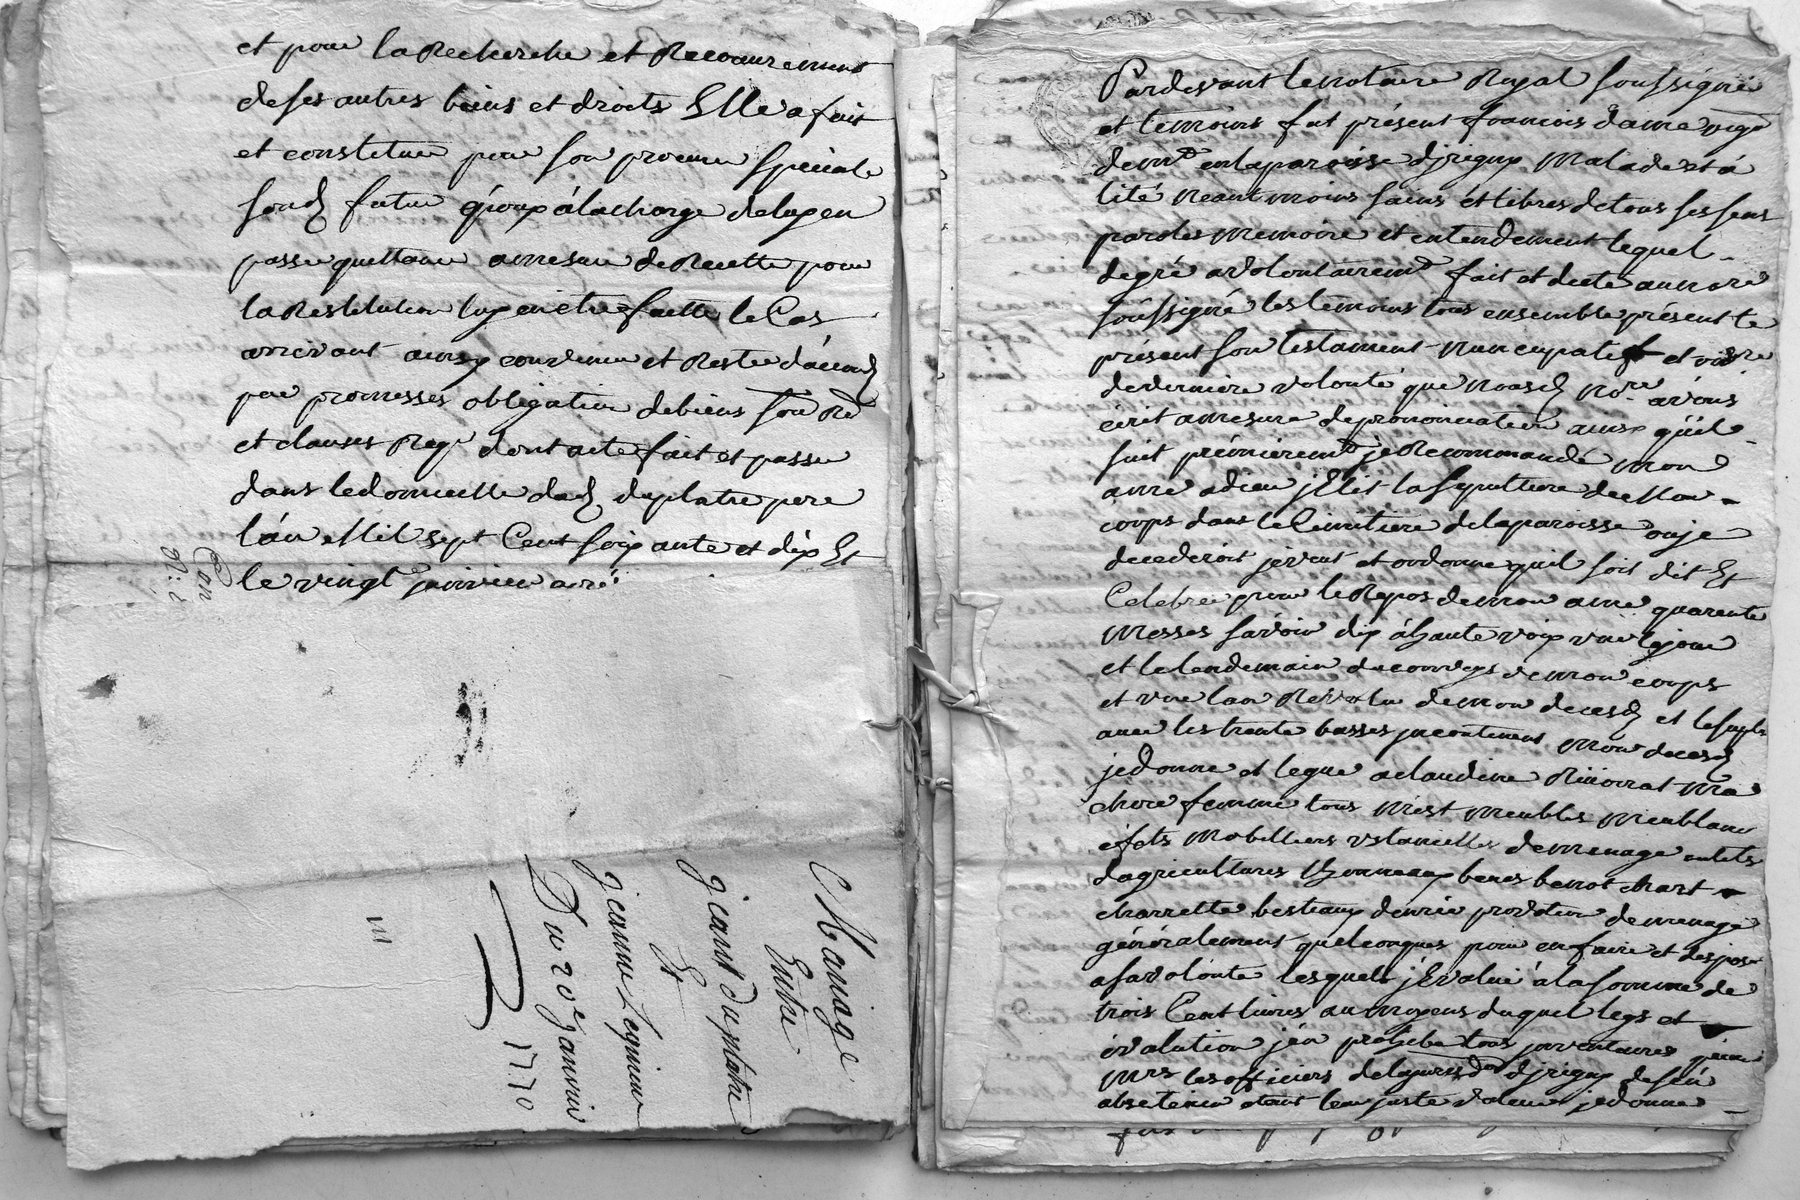 et pour la Recherche et Recouvrement
de ses autres biens et droits Elle a fait
et constitue pour son procureur speciale
fond futur à la charge
passer quittance a mesure de Recette pour
la Restitution en etre faitte le Cas
arrivant ainsy convenu et Reste d'acord
par promesses obligation de biens
et clauses Req dont acte fait et passé
dans le domicille dud duplatre pere
l'an Mil sept Cent soixante et dix Et
le vingt janvier
Con
Mariage
Entre
jean duplatre
Et
jeanne
Du 20e janvier
1770
Pardevant le notaire Royal soussigné
et temoins fut présent francois dame
de en la paroisse d'jrigny Malade
lité Neant moins sains et libres de tous ses sens
paroles Memoire et entendement lequel
de gré a volontairemt fait et dicté au no.re
soussigné les temoins tous ensemble présent le
présent son testament Nuncupatif et
de derniere volonté que Nousd No.re avons
écrit a mesure de prononciation ainsy qu'il
suit prémierem.t je Recommande mon
ame a dieu j'Elit la sepulture de Mon
corps dans le Cimitiere de la paroisse ou je
decederoit je veut et ordonne quil soit dit Et
Celebré pour le Repos de mon ame quarente
Messes savoir dix à haute voix le jour
et le lendemain du convoys de mon corps
et une l'an Revolu de mon deces et le
avec les trente basses jncontinent Mon deces
je donne et legue a claudine Ma
chere femme tous mest Meubles Meublant
éfets Mobilliers ustancilles de menage outils
d'agricultures Thonneaux benes benot chart
charrette bestiaux denrée provition de menage
généralement quelconques pour en faire et disposer
a sa volonte lesquels j'Evalue à la somme de
trois Cent livres au moyens duquel legs et
évalution j'en prohibe tous jnventaires
Mrs les officiers de la juris.on d'jrigny de s'en
abstenir etant leur juste valeur je donne